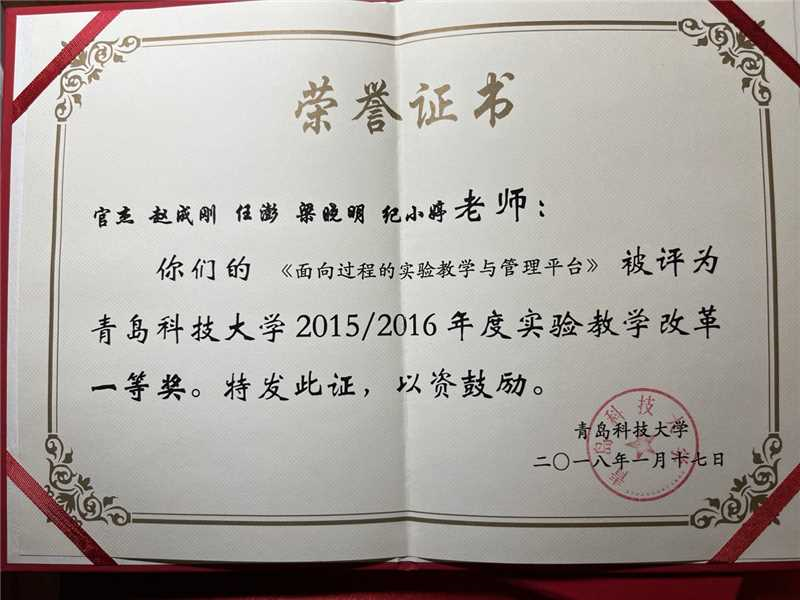 荣誉证书
官杰 赵成刚 任澎 梁晓明 纪小婷老师：
你们的 《面向过程的实验教学与管理平台》 被评为
青岛科技大学2015/2016年度实验教学改革
一等奖。特发此证，以资鼓励。
青岛科技大学
二〇一八年一月十七日
青岛科技大学